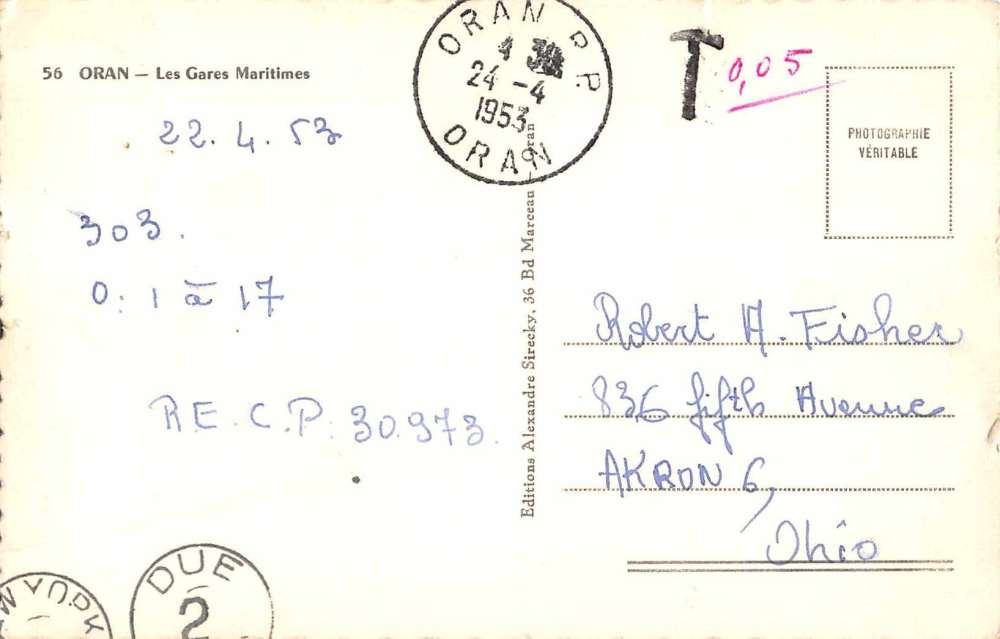 56 ORAN — Les Gares Maritimes
22.4.53
303.
0: 1 à 17
R.E.C.P. 30.973.
ORAN R.P.
24-4
1953
ORAN
T
0,05
PHOTOGRAPHIE
VÉRITABLE
Editions Alexandre Sirecky, 36 Bd Marceau, Oran
Robert A. Fisher
836 fifth Avenue
AKRON 6,
Ohio
DUE
2